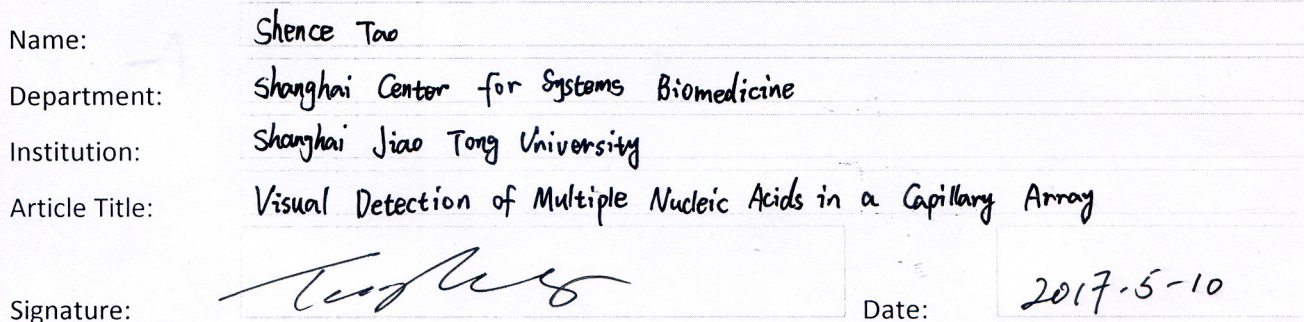 Name: Shence Tao
Department: Shanghai Center for Systems Biomedicine
Institution: Shanghai Jiao Tong University
Article Title: Visual Detection of Multiple Nucleic Acids in a Capillary Array
Signature: Date: 2017.5-10